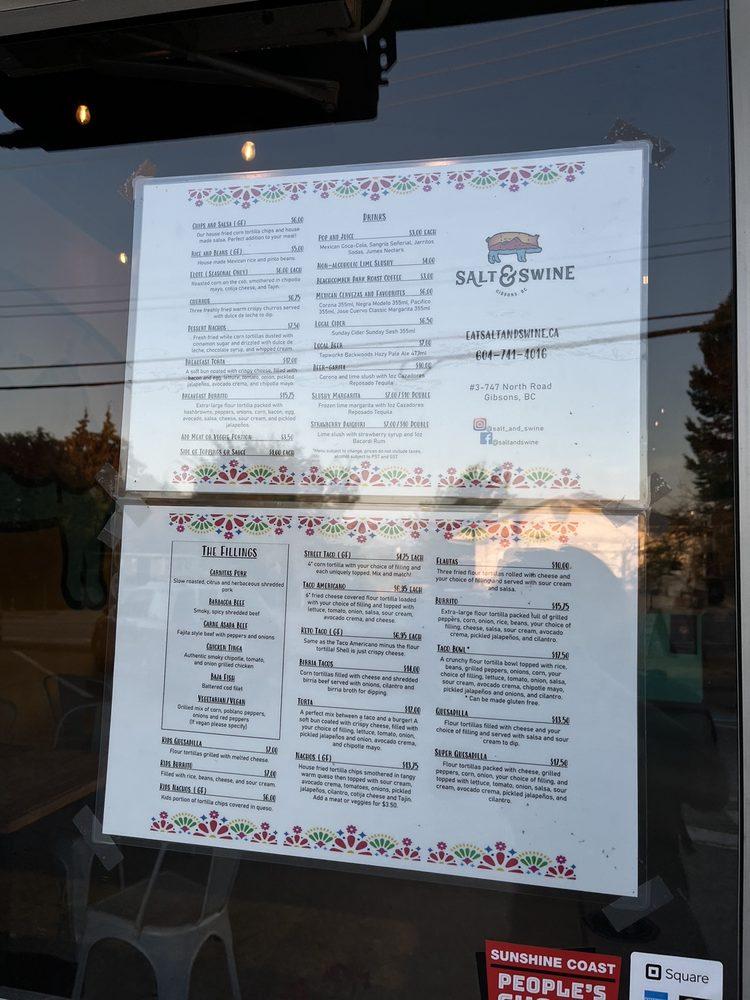 Chips and Salsa (GF) $6.00
Our house fried corn tortilla chips and house
made salsa. Perfect addition to your meal!
Rice and Beans (GF) $5.00
House made Mexican rice and pinto beans.
Elote (Seasonal Only) $6.00 each
Roasted corn on the cob, smothered in chipotle
mayo, cotija cheese, and Tajin.
Churros $6.75
Three freshly fried warm crispy churros served
with dulce de leche to dip.
Dessert Nachos $7.50
Fresh fried white corn tortillas dusted with
cinnamon sugar and drizzled with dulce de
leche, chocolate syrup, and whipped cream.
Breakfast Torta $12.00
A soft bun coated with crispy cheese, filled with
bacon and egg, lettuce, tomato, onion, pickled
jalapeños, avocado crema, and chipotle mayo.
Breakfast Burrito $15.75
Extra-large flour tortilla packed with
hashbrowns, peppers, onions, corn, bacon, egg,
avocado, salsa, cheese, sour cream, and pickled
jalapeños.
Add Meat or Veggie Portion $3.50
Side of Toppings or Sauce $1.00 each
Drinks
Pop and Juice $3.00 each
Mexican Coca-Cola, Sangria Señorial, Jarritos
Sodas, Jumex Nectars.
Non-Alcoholic Lime Slushy $4.00
Beachcomber Dark Roast Coffee $3.00
Mexican Cervezas and Favourites $6.00
Corona 355ml, Negra Modelo 355ml, Pacifico
355ml, Jose Cuervo Classic Margarita 355ml
Local Cider $6.50
Sunday Cider Sunday Sesh 355ml
Local Beer $7.00
Tapworks Backwoods Hazy Pale Ale 473ml
Beer-garita $10.00
Corona and lime slush with 1oz Cazadores
Reposado Tequila
Slushy Margarita $7.00/$10 Double
Frozen lime margarita with 1oz Cazadores
Reposado Tequila
Strawberry Daiquiri $7.00/$10 Double
Lime slush with strawberry syrup and 1oz
Bacardi Rum
*Menu subject to change, prices do not include taxes,
alcohol subject to PST and GST
SALT & SWINE
GIBSONS, BC
eatsaltandswine.ca
604-741-4016
#3-747 North Road
Gibsons, BC
@salt_and_swine
@saltandswine
The Fillings
Carnitas Pork
Slow roasted, citrus and herbaceous shredded
pork
Barbacoa Beef
Smoky, spicy shredded beef
Carne Asada Beef
Fajita style beef with peppers and onions
Chicken Tinga
Authentic smoky chipotle, tomato,
and onion grilled chicken
Baja Fish
Battered cod filet
Vegetarian/Vegan
Grilled mix of corn, poblano peppers,
onions and red peppers
(If vegan please specify)
Kids Quesadilla $7.00
Flour tortillas grilled with melted cheese.
Kids Burrito $7.00
Filled with rice, beans, cheese, and sour cream.
Kids Nachos (GF) $6.00
Kids portion of tortilla chips covered in queso.
Street Taco (GF) $4.25 each
4" corn tortilla with your choice of filling and
each uniquely topped. Mix and match!
Taco Americano $6.95 each
6" fried cheese covered flour tortilla loaded
with your choice of filling and topped with
lettuce, tomato, onion, salsa, sour cream,
avocado crema, and cheese.
Keto Taco (GF) $6.95 each
Same as the Taco Americano minus the flour
tortilla! Shell is just crispy cheese.
Birria Tacos $14.00
Corn tortillas filled with cheese and shredded
birria beef served with onions, cilantro and
birria broth for dipping.
Torta $12.00
A perfect mix between a taco and a burger! A
soft bun coated with crispy cheese, filled with
your choice of filling, lettuce, tomato, onion,
pickled jalapeños and onion, avocado crema,
and chipotle mayo.
Nachos (GF) $13.75
House fried tortilla chips smothered in tangy
warm queso then topped with sour cream,
avocado crema, tomatoes, onions, pickled
jalapeños, cilantro, cotija cheese and Tajin.
Add a meat or veggies for $3.50.
Flautas $10.00
Three fried flour tortillas rolled with cheese and
your choice of filling and served with sour cream
and salsa.
Burrito $15.75
Extra-large flour tortilla packed full of grilled
peppers, corn, onion, rice, beans, your choice of
filling, cheese, salsa, sour cream, avocado
crema, pickled jalapeños, and cilantro.
Taco Bowl* $17.50
A crunchy flour tortilla bowl topped with rice,
beans, grilled peppers, onions, corn, your
choice of filling, lettuce, tomato, onion, salsa,
sour cream, avocado crema, chipotle mayo,
pickled jalapeños and onions, and cilantro.
* Can be made gluten free.
Quesadilla $13.50
Flour tortillas filled with cheese and your
choice of filling and served with salsa and sour
cream to dip.
Super Quesadilla $17.50
Flour tortillas packed with cheese, grilled
peppers, corn, onion, your choice of filling, and
topped with lettuce, tomato, onion, salsa, sour
cream, avocado crema, pickled jalapeños, and
cilantro.
SUNSHINE COAST
PEOPLE'S
Square